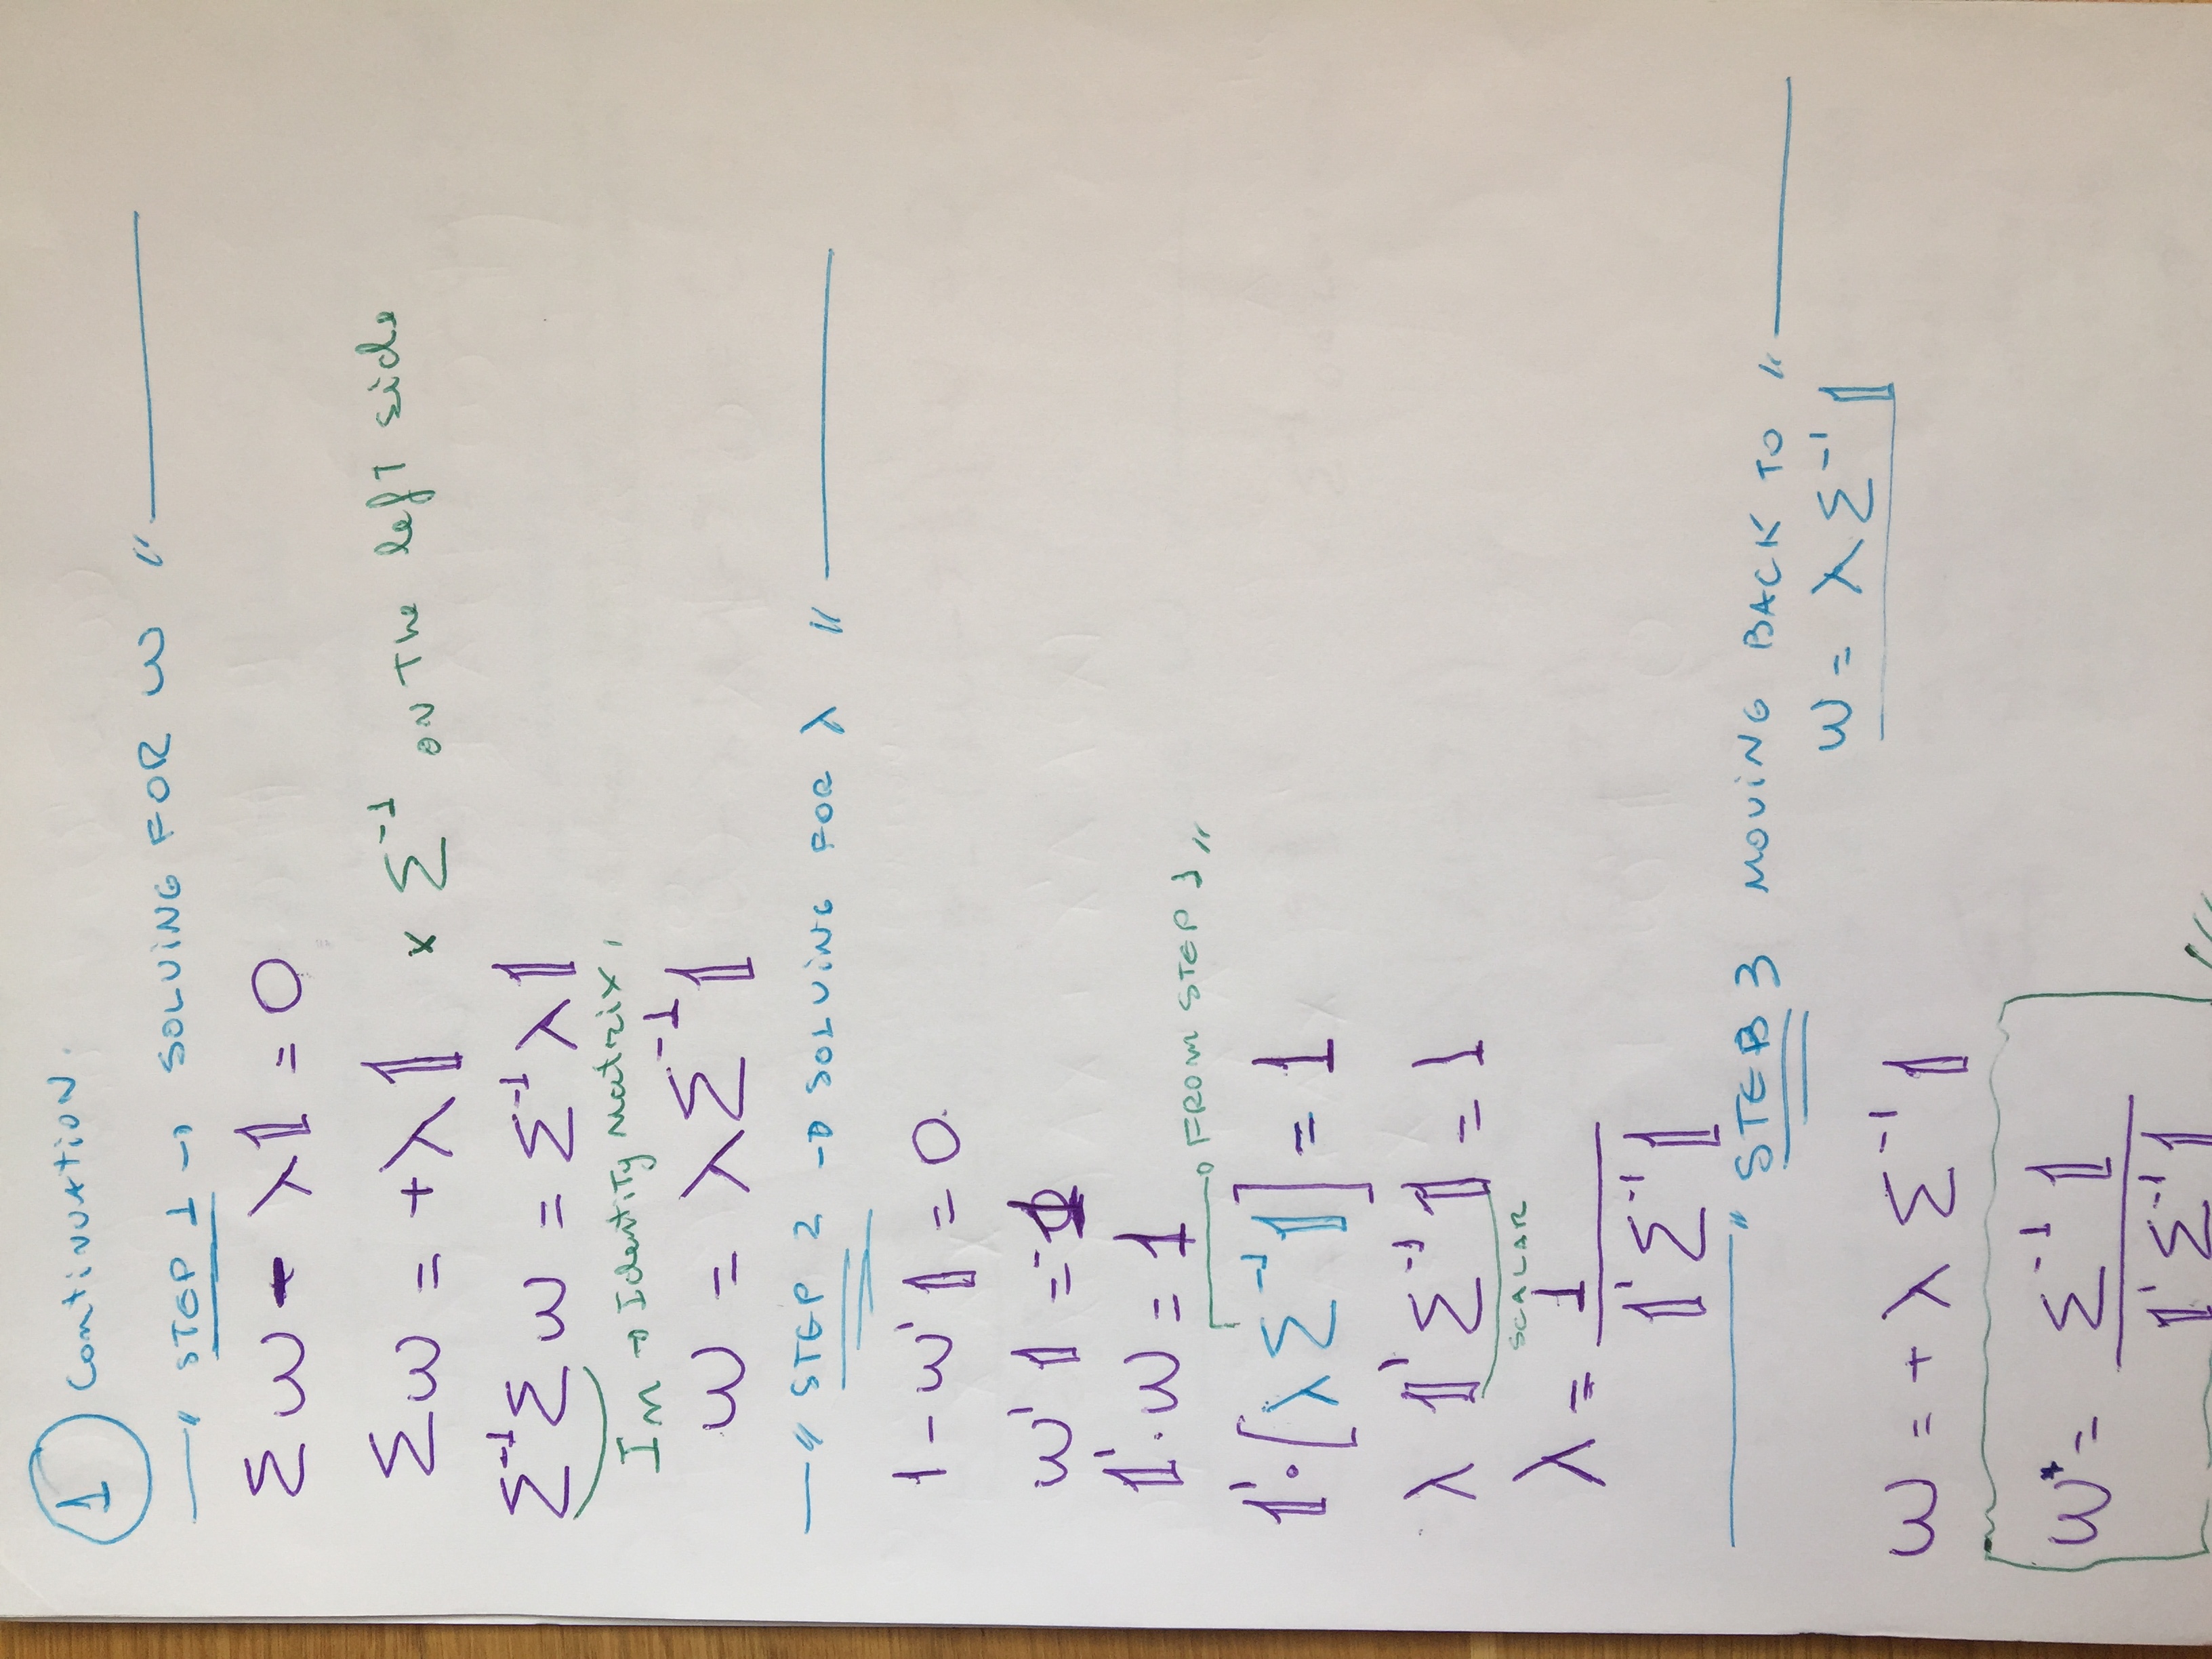 1 Continuation.
—" STEP 1 → SOLVING FOR ω "—
Σω - λ𝟙 = 0
Σω = +λ𝟙 x Σ⁻¹ on The left side
Σ⁻¹Σω = Σ⁻¹λ𝟙
In → Identity Matrix,
ω = λΣ⁻¹𝟙
—" STEP 2 → SOLVING FOR λ "—
1 - ω'𝟙 = 0.
ω'𝟙 = 1
𝟙'·ω = 1
FROM STEP 1 "
𝟙'·[λΣ⁻¹𝟙] = 1
λ 𝟙'Σ⁻¹𝟙 = 1
SCALAR
λ = 1
𝟙'Σ⁻¹𝟙
—" STEB 3 MOVING BACK TO "—
ω = λΣ⁻¹𝟙
ω = + λ Σ⁻¹𝟙
ω* = Σ⁻¹𝟙
𝟙'Σ⁻¹𝟙